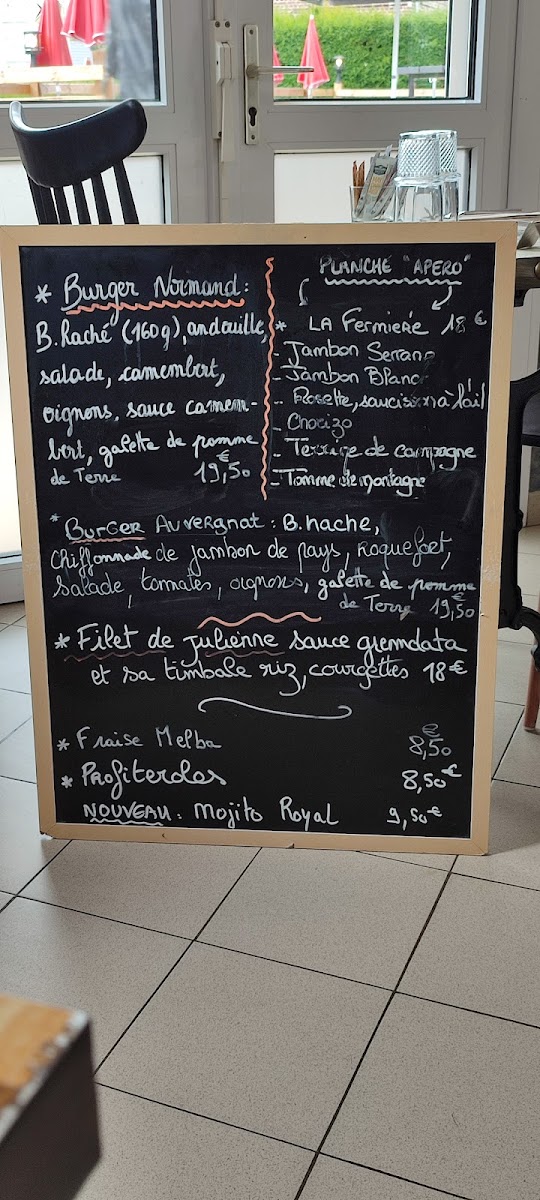 * Burger Normand:
B. Haché (160g), andouille,
salade, camembert,
oignons, sauce camem-
bert, galette de pomme
de Terre 19,50€
PLANCHE "APERO"
* LA Fermière 18€
- Jambon Serrano
- Jambon Blanc
- Rosette, saucisson à l'ail
- Chorizo
- Terrine de campagne
- Tomme de montagne
* Burger Auvergnat: B. hache,
Chiffonnade de jambon de pays, Roquefort,
Salade, tomates, oignons, galette de pomme
de Terre 19,50€
* Filet de julienne sauce
et sa timbale riz, courgettes 18€
* Fraise Melba 8,50€
* Profiteroles 8,50€
NOUVEAU: Mojito Royal 9,50€